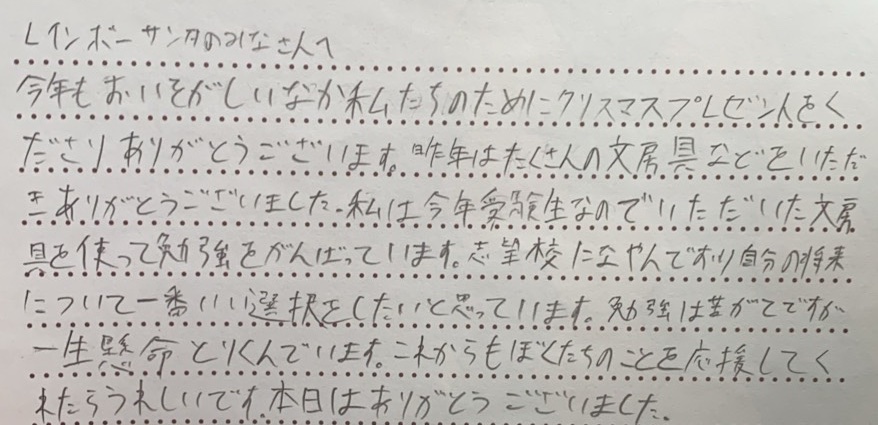 レインボーサンタのみなさんへ
今年もおいそがしいなか私たちのためにクリスマスプレゼントをく
ださりありがとうございます。昨年はたくさんの文房具などをいただ
きありがとうございました。私は今年受験生なのでいただいた文房
具を使って勉強をがんばっています。志望校になやんでおり自分の将来
について一番いい選択をしたいと思っています。勉強は苦がてですが
一生懸命とりくんでいます。これからもぼくたちのことを応援してく
れたらうれしいです。本日はありがとうございました。